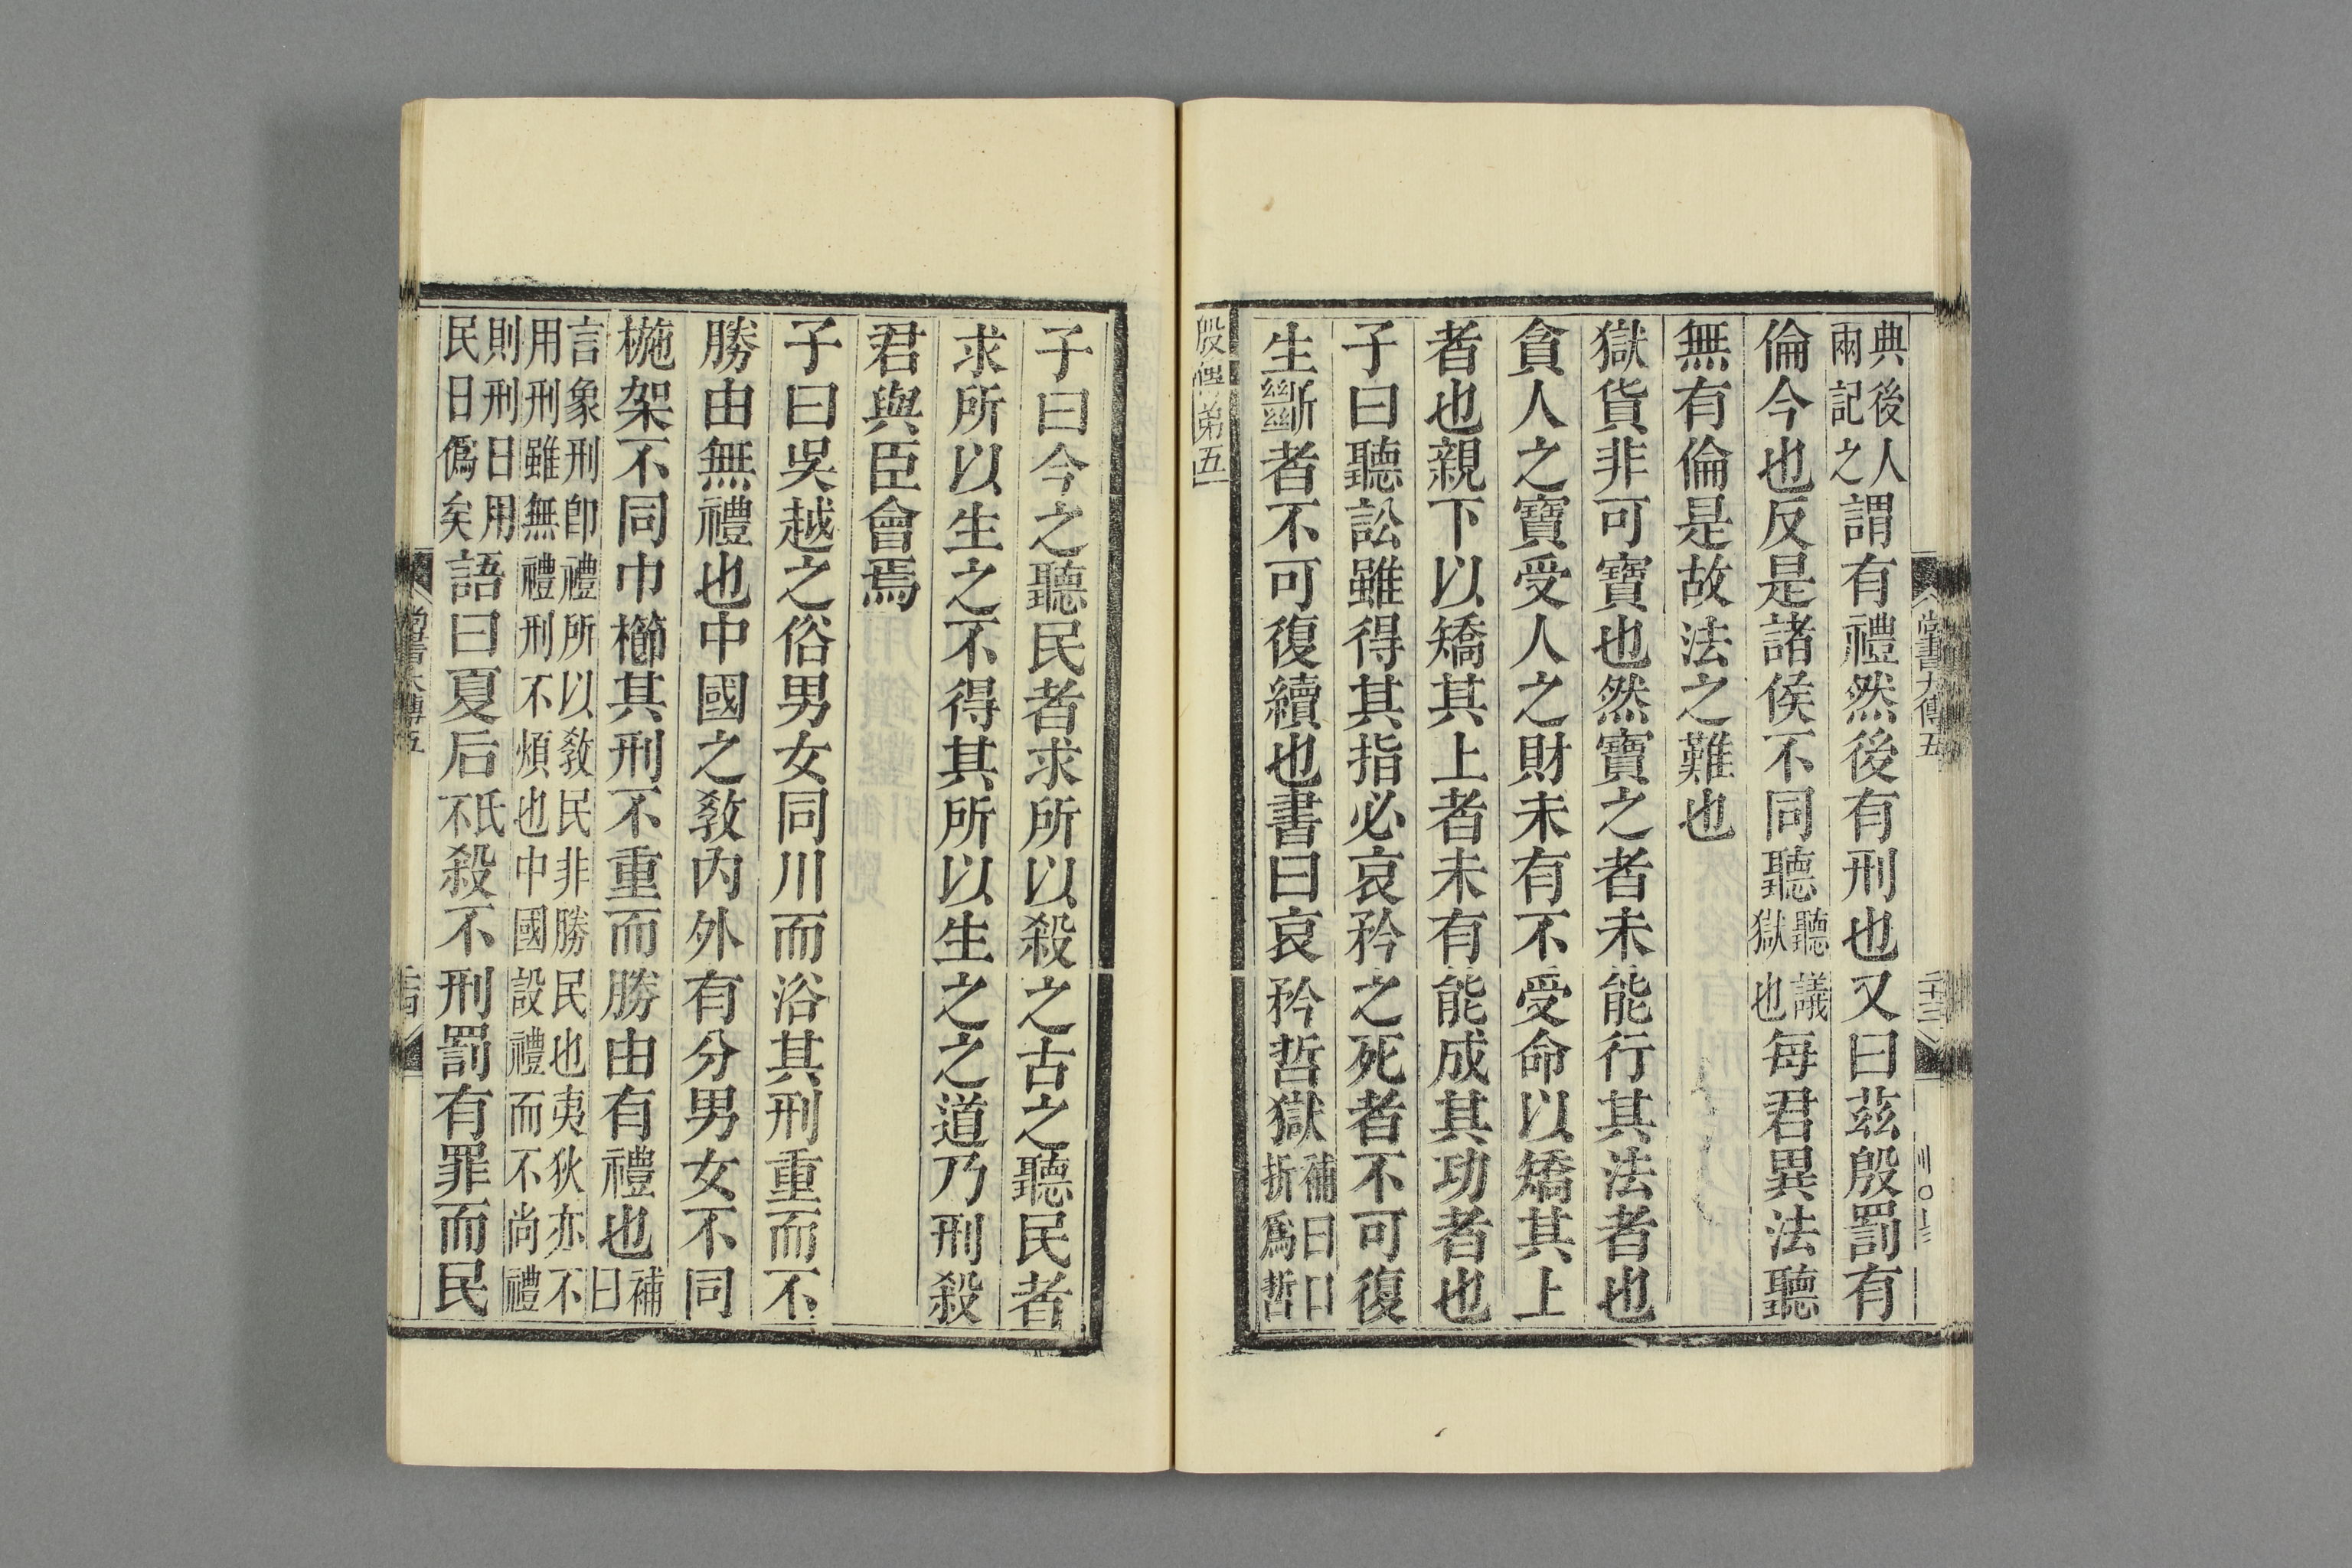 典後人兩記之謂有禮然後有刑也又曰茲殷罰有
倫今也反是諸侯不同聽聽議獄也每君異法聽
無有倫是故法之難也
獄貨非可寶也然寶之者未能行其法者也
貪人之寶受人之財未有不受命以矯其上
者也親下以矯其上者未有能成其功者也
子曰聽訟雖得其指必哀矜之死者不可復
生𢇍者不可復續也書曰哀矜哲獄補曰口折爲哲
子曰今之聽民者求所以殺之古之聽民者
求所以生之不得其所以生之之道乃刑殺
君與臣會焉
子曰吳越之俗男女同川而浴其刑重而不
勝由無禮也中國之敎內外有分男女不同
椸架不同巾櫛其刑不重而勝由有禮也補曰
言象刑卽禮所以敎民非勝民也夷狄亦不
用刑雖無禮刑不煩也中國設禮而不尚禮
則刑日用民日僞矣語曰夏后氏不殺不刑罰有罪而民